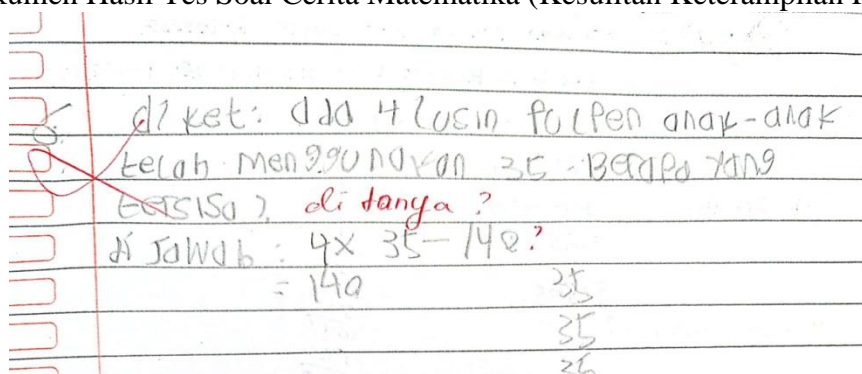 Hasil Tes Soal Cerita Matematika (Kesulitan Keterampilan
5. diket: ada 4 lusin pulpen anak-anak
telah menggunakan 35. Berapa yang
tersisa? di tanya?
di Jawab: 4x 35-140?
= 140 35
35
35